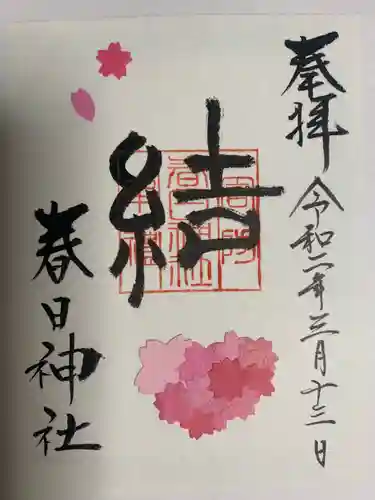 奉拝
令和二年三月十三日
結
春日神社